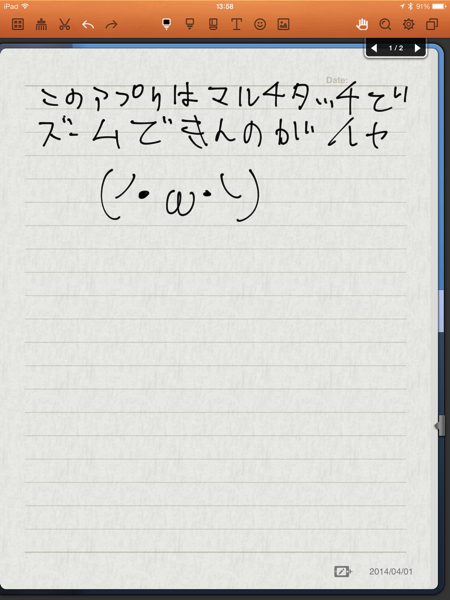 iPad 13:58 91%
1 / 2
Date:
このアプリはマルチタッチで
ズームできんのがイヤ
(´・ω・`)
2014/04/01